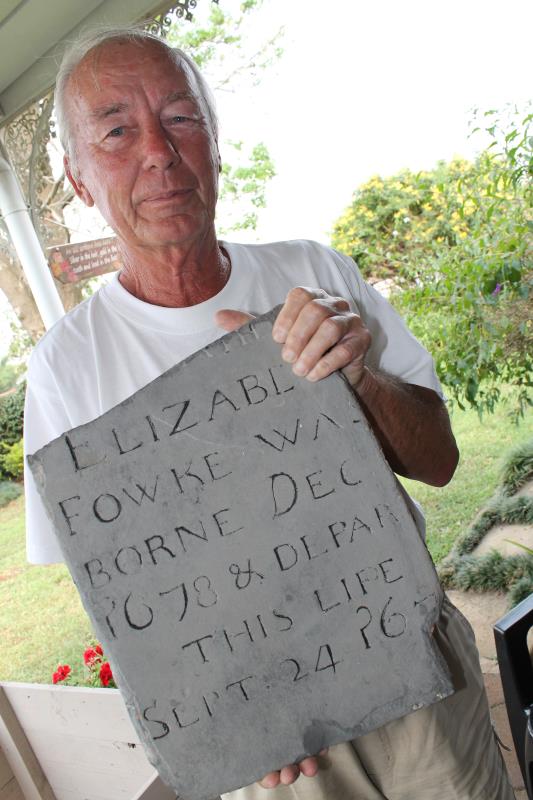 ELIZABE
FOWKE WA-
BORNE DEC
1678 & DEPAR
THIS LIFE
SEPT. 24 167